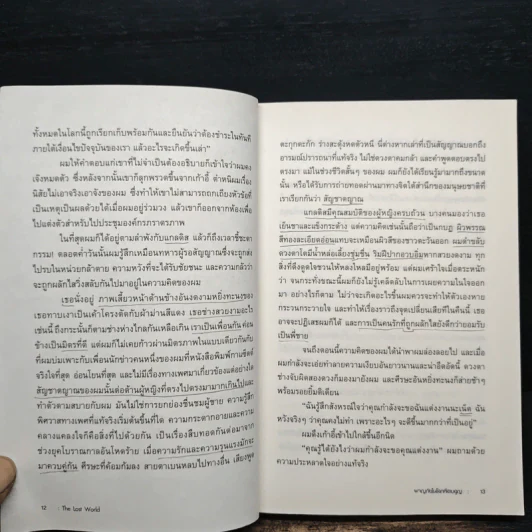 ทั้งหมดในโลกนี้ถูกเรียกเก็บพร้อมกันและยืนยันว่าต้องชำระในทันที
ภายใต้เงื่อนไขปัจจุบันของเรา แล้วอะไรจะเกิดขึ้นเล่า"
ผมให้คำตอบแก่เขาที่ไม่จำเป็นต้องอธิบายก็เข้าใจว่าผมคง
เจ๊งแน่นอน ซึ่งหลังจากนั้นเขาก็ลุกพรวดขึ้นจากเก้าอี้ ตำหนิผมเรื่อง
นิสัยไม่เอาจริงเอาจังของผม ซึ่งทำให้เขาไม่สามารถถกเถียงหัวข้อที่
เป็นเหตุเป็นผลด้วยได้เมื่อผมอยู่ร่วมวง แล้วเขาก็ออกจากห้องเพื่อ
ไปแต่งตัวสำหรับไปประชุมองค์กรภราดรภาพ
ในที่สุดผมก็ได้อยู่ตามลำพังกับแกลดิส แล้วก็ถึงเวลาชี้ชะตา
กรรม! ตลอดค่ำวันนั้นผมรู้สึกเหมือนทหารผู้รอสัญญาณซึ่งจะถูกส่ง
ไปรบในหน่วยกล้าตาย ความหวังที่จะได้รับชัยชนะ และความกลัวว่า
จะถูกผลักไสวิ่งสลับกันไปมาอยู่ในความคิดของผม
เธอนั่งอยู่ ภาพเสี้ยวหน้าด้านข้างอันงดงามหยิ่งทะนงของ
เธอทาบเงาเป็นเค้าโครงตัดกับผ้าม่านสีแดง เธอช่างสวยงามอะไร
เช่นนี้ ถึงกระนั้นก็ตามช่างห่างไกลกันเหลือเกิน เราเป็นเพื่อนกัน ค่อน
ข้างเป็นมิตรที่ดี แต่ผมก็ไม่เคยก้าวผ่านมิตรภาพในแบบเดียวกันกับ
ที่ผมบ่มเพาะกับเพื่อนนักข่าวคนหนึ่งของผมที่หนังสือพิมพ์กาเซ็ตต์
จริงใจที่สุด อ่อนโยนที่สุด และไม่มีเรื่องทางเพศมาเกี่ยวข้องแต่อย่างใด
สัญชาตญาณของผมนั้นต่อต้านผู้หญิงที่ตรงไปตรงมามากเกินไปและ
ทำตัวตามสบายกับผม มันไม่ใช่การยกย่องชื่นชมผู้ชาย ความรู้สึก
พิศวาสทางเพศที่แท้จริงเริ่มต้นขึ้นที่ใด ความกระดากอายและความ
คลางแคลงใจก็คือสิ่งที่ไปด้วยกัน เป็นเรื่องสืบทอดกันต่อมาจาก
ช่วงยุคโบราณกาลอันโหดร้าย เมื่อความรักและความรุนแรงมักจะ
มาควบคู่กัน ศีรษะที่ค้อมก้มลง สายตาเบนหลบไปทางอื่น เสียงพูด
12 : The Lost World
ตะกุกตะกัก ร่างสะดุ้งหดตัวหนี นี่ต่างหากเล่าที่เป็นสัญญาณบอกถึง
อารมณ์ปรารถนาที่แท้จริง ไม่ใช่ดวงตาคมกล้า และคำพูดตอบตรงไป
ตรงมา แม้ในช่วงชีวิตสั้นๆ ของผม ผมก็ยังได้เรียนรู้มามากถึงขนาด
นั้น หรือได้รับการถ่ายทอดผ่านมาทางจิตใต้สำนึกของมนุษยชาติที่
เราเรียกกันว่า สัญชาตญาณ
แกลดิสมีคุณสมบัติของผู้หญิงครบถ้วน บางคนมองว่าเธอ
เย็นชาและแข็งกระด้าง แต่ความคิดเช่นนั้นถือว่าเป็นกบฏ ผิวพรรณ
สีทองละเอียดอ่อนแทบจะเหมือนผิวสีของชาวตะวันออก ผมดำขลับ
ดวงตาโตมีน้ำหล่อเลี้ยงชุ่มชื่น ริมฝีปากอวบอิ่มหากสวยงดงาม ทุก
สิ่งที่ดึงดูดใจชวนให้หลงใหลมีอยู่พร้อม แต่ผมเศร้าใจเมื่อตระหนัก
ว่า จนกระทั่งขณะนี้ผมก็ยังไม่รู้เคล็ดลับในการเผยความในใจออก
มา อย่างไรก็ตาม ไม่ว่าจะเกิดอะไรขึ้นผมควรจะทำให้ตัวเองหาย
กระวนกระวาย และทำให้เรื่องราวถึงจุดเปลี่ยนเสียทีในคืนนี้ เธอ
อาจจะปฏิเสธผมก็ได้ และการเป็นคนรักที่ถูกผลักไสยังดีกว่ายอมรับ
เป็นพี่ชาย
จนถึงตอนนี้ความคิดของผมได้นำพาผมล่องลอยไป และเมื่อ
ผมกำลังจะเอ่ยทำลายความเงียบอันยาวนานและน่าอึดอัดนี้ ดวงตา
ช่างจับผิดสองดวงก็มองมายังผม และศีรษะอันหยิ่งทะนงก็ส่ายช้าๆ
พร้อมรอยยิ้มติเตียน
"ฉันรู้สึกสังหรณ์ใจว่าคุณกำลังจะขอฉันแต่งงานนะเน็ด ฉัน
หวังจริงๆ ว่าคุณคงไม่ทำ เพราะอะไรๆ จะดีขึ้นมากกว่าที่เป็นอยู่"
ผมดึงเก้าอี้เข้าไปใกล้ขึ้นอีกนิด
"คุณรู้ได้ยังไงว่าผมกำลังจะขอคุณแต่งงาน" ผมถามด้วย
ความประหลาดใจอย่างแท้จริง
: 13